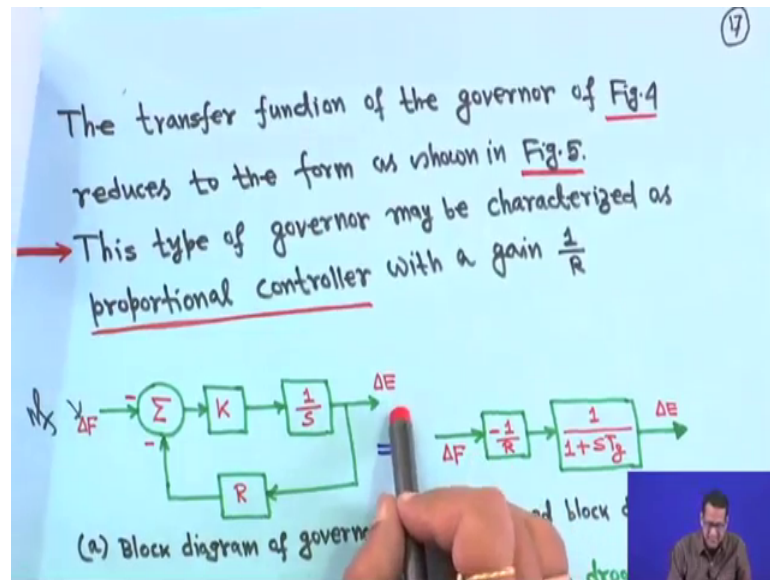 17
The transfer function of the governor of Fig.4
reduces to the form as shown in Fig.5.
→ This type of governor may be characterized as
proportional controller with a gain 1/R
ΔF - Σ - K 1/S ΔE
R
=
ΔF -1/R 1/(1+STg) ΔE
(a) Block diagram of govern
block